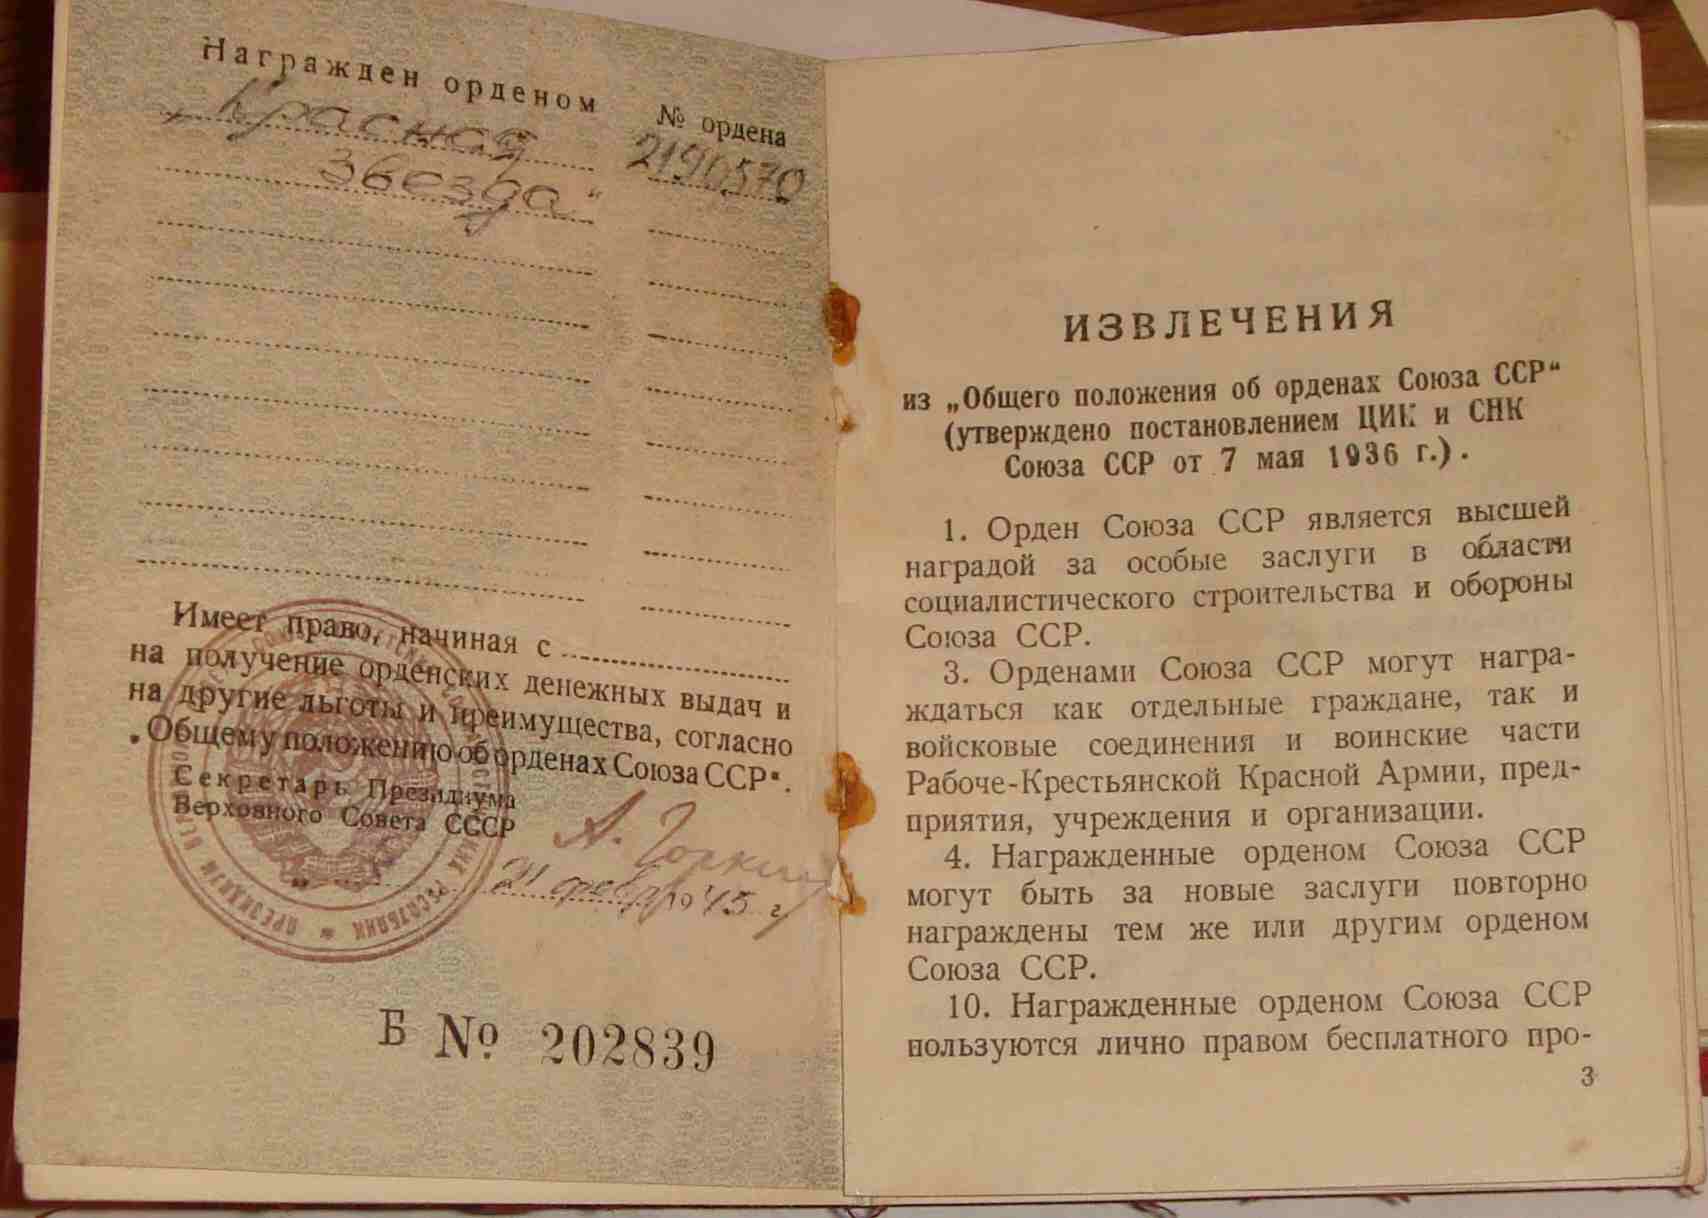 Награжден орденом
№ ордена
„Красная
Звезда“
2190570
Имеет право, начиная с
на получение орденских денежных выдач и
на другие льготы и преимущества, согласно
„Общему положению об орденах Союза ССР“.
Секретарь Президиума
Верховного Совета СССР
А. Горкин
Б № 202839
ИЗВЛЕЧЕНИЯ
из „Общего положения об орденах Союза ССР“
(утверждено постановлением ЦИК и СНК
Союза ССР от 7 мая 1936 г.).
1. Орден Союза ССР является высшей
наградой за особые заслуги в области
социалистического строительства и обороны
Союза ССР.
3. Орденами Союза ССР могут награ-
ждаться как отдельные граждане, так и
войсковые соединения и воинские части
Рабоче-Крестьянской Красной Армии, пред-
приятия, учреждения и организации.
4. Награжденные орденом Союза ССР
могут быть за новые заслуги повторно
награждены тем же или другим орденом
Союза ССР.
10. Награжденные орденом Союза ССР
пользуются лично правом бесплатного про-
3